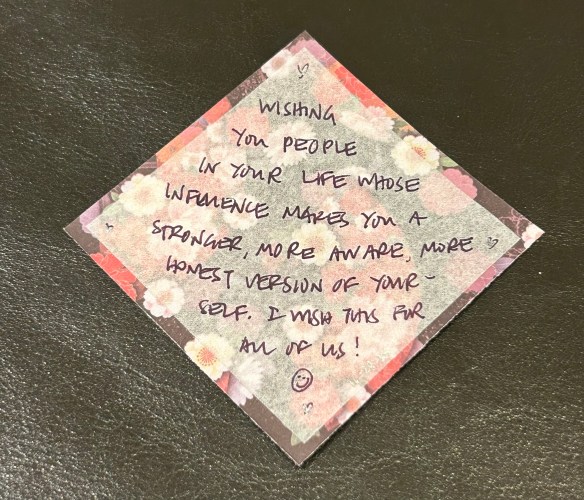 WISHING
YOU PEOPLE
IN YOUR LIFE WHOSE
INFLUENCE MAKES YOU A
STRONGER, MORE AWARE, MORE
HONEST VERSION OF YOUR-
SELF. I WISH THIS FOR
ALL OF US!